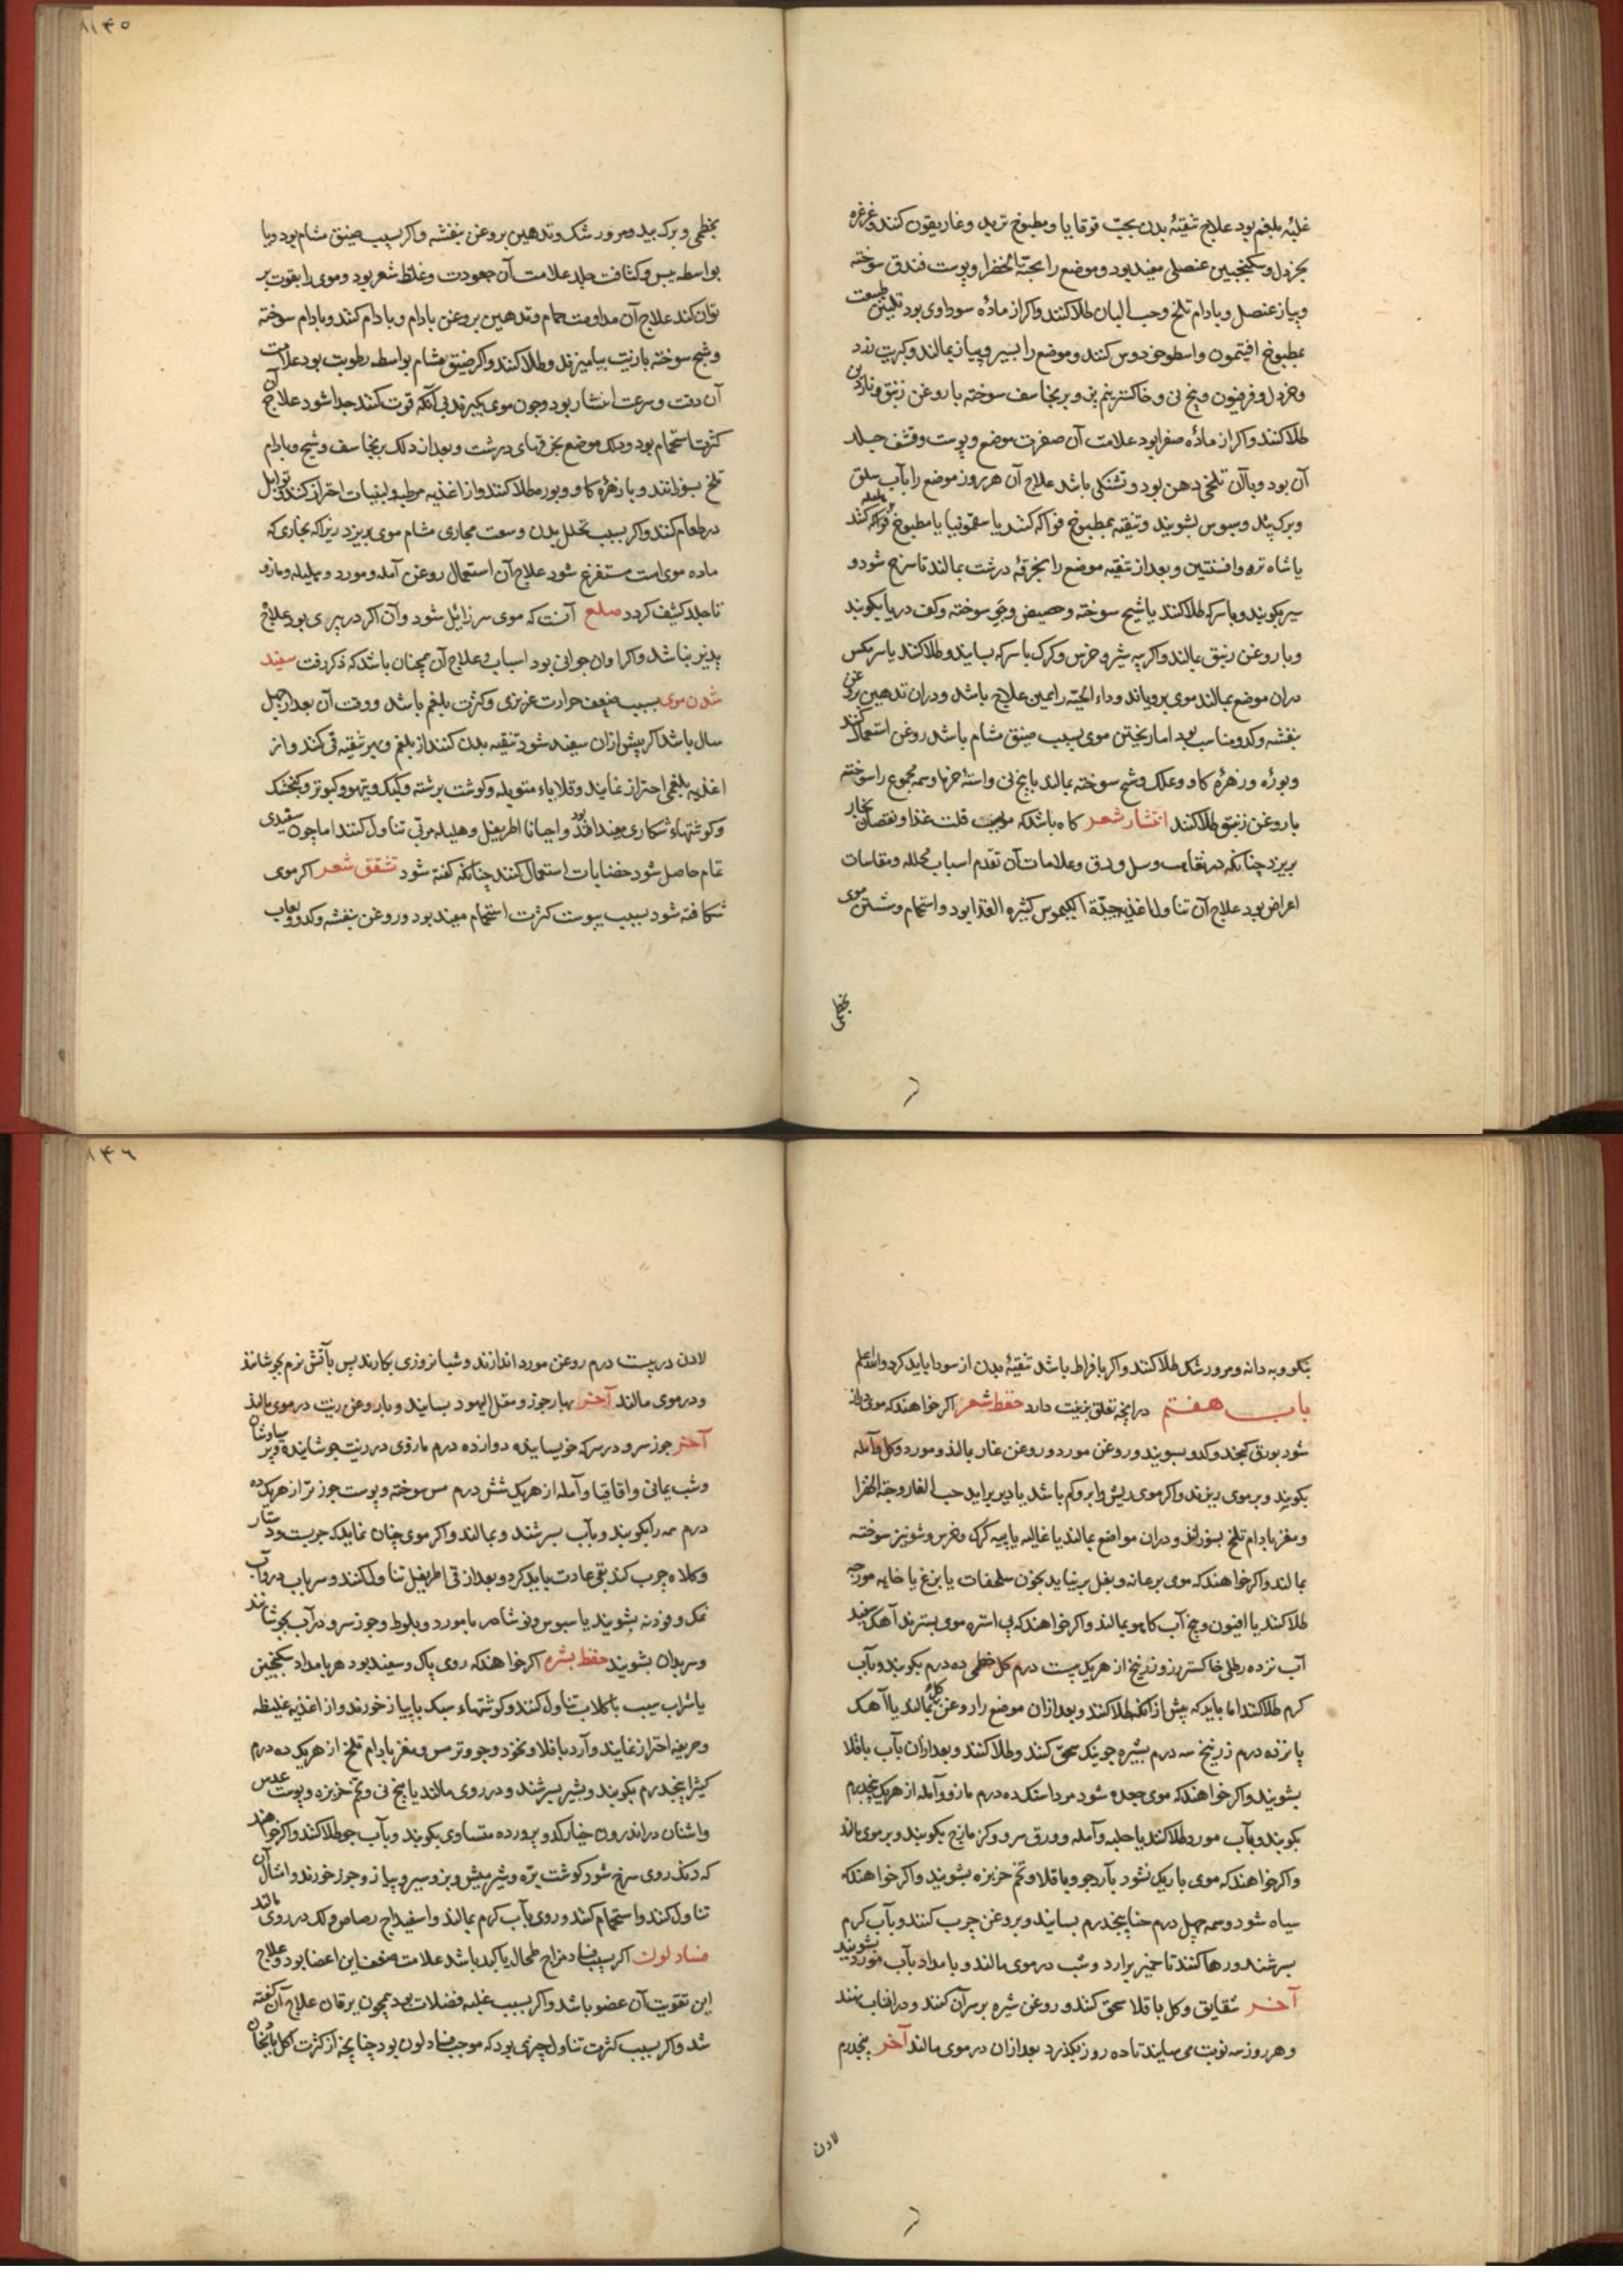 ۱۴۵
غلبهٔ بلغم بود علاج تنقیهٔ بدن بحبّ قوقایا و مطبوخ تربد و غاریقون کنند و غرغره
بخردل و سکنجبین عنصلی مفید بود و موضع را بحبّة الخضرا و پوست فندق سوخته
و پیاز عنصل و بادام تلخ و حب البان طلا کنند و اکر از مادّه سوداوی بود تلیین طبیعت
بمطبوخ افتیمون و اسطوخودوس کنند و موضع را بسیر و پیاز بمالند و کبریت زرد
و خردل و فرفیون و بیخ نی و خاکستر و برنجاسف سوخته با روغن زنبق
طلا کنند و اکر از مادّه صفرا بود علامت آن صفرت موضع و پوست و قشف جلد
آن بود و با آن تلخی دهن بود و تشنکی باشد علاج آن هر روز موضع را بآب سلق
و برک بید و سبوس بشویند و تنقیه بمطبوخ فواکه کنند یا سقمونیا یا مطبوخ هلیله
یا شاه تره و افسنتین و بعد از تنقیه موضع را بخرقهٔ درشت بمالند تا سرخ شود و
سیر بکوبند و با سرکه طلا کنند یا شیح سوخته و حضیض و جو سوخته و کف دریا بکوبند
و با روغن زنبق بمالند و اکر پیه شیر و خرس و کرک با سرکه بسایند و طلا کنند یا سر مکس
دران موضع بمالند موی برویاند و داء الحیّه را همین علاج باشد و دران تدهین بروغن
بنفشه و کدو مناسب بود اما ریختن موی بسبب ضیق مشام باشد روغن استعمال کنند
و بوره و زهرهٔ کاو و علک و شیح سوخته بمالند یا بیخ نی و استهٔ خرما و سمه مجموع را سوخته
با روغن زنبق طلا کنند انتشار شعر کاه باشد که موجب قلت غذا و نقصان بخار
بریزد چنانکه در نقاهت و سل و دق و علامات آن تقدم اسباب محلله و مقاسات
امراض بود علاج آن تناول اغذیه جیّدة الکیموس کثیره الغذا بود و استحمام و شستن موی
بخطمی
بخطمی و برک بید و مورد شک و تدهین بروغن بنفشه و اکر بسبب ضیق مشام بود و یا
بواسطه یبس و کثافت جلد علامت آن جعودت و غلظ شعر بود و موی را بقوت بر
توان کند علاج آن مداومت حمام و تدهین بروغن بادام و بادام کنند و بادام سوخته
و شیح سوخته با زیت بیامیزند و طلا کنند و اکر ضیق مشام بواسطه رطوبت بود علامت
آن دقت و سرعت انتشار بود و چون موی بکیرند بی آنکه قوت کنند جدا شود علاج آن
کثرت استحمام بود و دلک موضع بخرقهای درشت و بعد از دلک برنجاسف و شیح و بادام
تلخ بسوزانند و با زهرهٔ کاو و بوره طلا کنند و از اغذیه مرطبه و لبنیات احتراز کنند و توابل
در طعام کنند و اکر بسبب تخلل بدن و سعت مجاری مشام موی بریزد زیرا که بخاری که
ماده موی است مستفرغ شود علاج آن استعمال روغن آمله و مورد و هلیله و مازو
تا جلد کثیف کردد صلع آنست که موی سر زایل شود و آن اکر در پیری بود علاج
پذیر نباشد و اکر اوان جوانی بود اسباب و علاج آن همچنان باشد که ذکر رفت سفید
شدن موی بسبب ضعف حرارت غریزی و کثرت بلغم باشد و وقت آن بعد از چهل
سال باشد اکر پیش ازان سفید شود تنقیه بدن کنند از بلغم و بر تنقیه قی کنند و از
اغذیه بلغمی احتراز نمایند و قلایاء متوبله و کوشت برشته و کبک و تیهو و کبوتر و کنجشک
و کوشتهاء شکاری مفید افتد و احیانا اطریفل و هلیله مربّی تناول کنند اما چون سفیدی
تمام حاصل شود خضابات استعمال کنند چنانکه کفته شود تشقق شعر اکر موی
شکافته شود بسبب یبوست کثرت استحمام مفید بود و روغن بنفشه و کدو و لعاب
۱۴۶
بنکو و به دانه و مورد شک طلا کنند و اکر بافراط باشد تنقیهٔ بدن از سودا باید کرد و الله اعلم
باب هفتم در انچه تعلق بزینت دارد حفظ شعر اکر خواهند که موی دراز
شود بورق کنجد و کدو بشویند و روغن مورد و روغن غار بمالند و مورد و کل و آمله
بکوبند و بر موی ریزند و اکر موی ریش و ابرو کم باشد یا دیر براید حب الغار و حبة الخضرا
و مغز بادام تلخ بسوزانند و دران مواضع بمالند یا غالیه یا پیه کرک و خرس و شونیز سوخته
بمالند و اکر خواهند که موی بر عانه و بغل بر نیاید بخون سلحفات یا بزغ یا خایه مورچه
طلا کنند یا افیون و بیخ آب کاهو بمالند و اکر خواهند که بی استره موی بسترند آهک سفید
آب نزده رطلی خاکستر رز و زرنیخ از هر یک بیست درم کل خطمی ده درم بکوبند و بآب
کرم طلا کنند اما باید که پیش از آنکه طلا کنند و بعد ازان موضع را روغن کل بمالند یا آهک
پانزده درم زرنیخ سه درم بشیره جو نیک سحق کنند و طلا کنند و بعد ازان بآب باقلا
بشویند و اکر خواهند که موی جعد شود مرداسنک ده درم مازو و آمله از هر یک پنجدرم
بکوبند و بآب مورد طلا کنند یا حلبه و آمله و ورق سرو و کزمازج بکوبند و بر موی مالند
و اکر خواهند که موی باریک نشود بآرد جو و باقلا و تخم خربزه بشویند و اکر خواهند که
سیاه شود و سمه چهل درم حنا پنجدرم بسایند و بروغن چرب کنند و بآب کرم
بسرشند و رها کنند تا خمیر برارد و شب در موی مالند و بامداد بآب مورد بشویند
آخر شقایق و کل باقلا سحق کنند و روغن شیره بر سر آن کنند و در افتاب نهند
و هر روز سه نوبت می سایند تا ده روز بکذرد بعد ازان در موی مالند آخر پنجدرم
لادن
لادن در بیست درم روغن مورد اندازند و شبانروزی بکذارند پس بآتش نرم بجوشانند
و در موی مالند آخر بهار جوز و مقل الیهود بسایند و با روغن زیت در موی مالند
آخر جوز سرو در سرکه خیسانیده دوازده درم مازوی در زیت جوشانیده و پرسیاوشان
و شب یمانی و اقاقیا و آمله از هر یک شش درم مس سوخته و پوست جوز تر از هر یک ده
درم همه را بکوبند و بآب بسرشند و بمالند و اکر موی چنان نماید که چربست و دستار
و کلاه چرب کند بقی عادت باید کرد و بعد از قی اطریفل تناول کنند و سر بآب در و آب
نمک و فودنه بشویند یا سبوس و نی شامی یا مورد و بلوط و جوز سرو در آب بجوشانند
و سر بدان بشویند حفظ بشره اکر خواهند که روی پاک و سفید بود هر بامداد سکنجبین
یا شراب سیب با کلاب تناول کنند و کوشتهاء سبک با پیاز خورند و از اغذیه غلیظه
و حریفه احتراز نمایند و آرد باقلا و نخود و جو و ترمس و مغز بادام تلخ از هر یک ده درم
کثیرا پنجدرم بکوبند و بشیر بسرشند و در روی مالند یا بیخ نی و تخم خربزه و پوست عدس
و اشنان در اندرون خیار کدو پرورده متساوی بکوبند و بآب جو طلا کنند و اکر خواهند
که رنک روی سرخ شود کوشت برّه و شیر میش و بز و سیر و پیاز و جوز خورند و امثال آن
تناول کنند و استحمام کنند و روی بآب کرم بمالند و اسفیداج رصاص و لک در روی مالند
فساد لون اکر بسبب فساد مزاج طحال یا کبد باشد علامت ضعف این اعضا بود و علاج
این تقویت آن عضو باشد و اکر بسبب غلبه فضلات بود همچون یرقان علاج آن کفته
شد و اکر بسبب کثرت تناول چیزی بود که موجب فساد لون بود چنانچه از کثرت اکل بادنجان